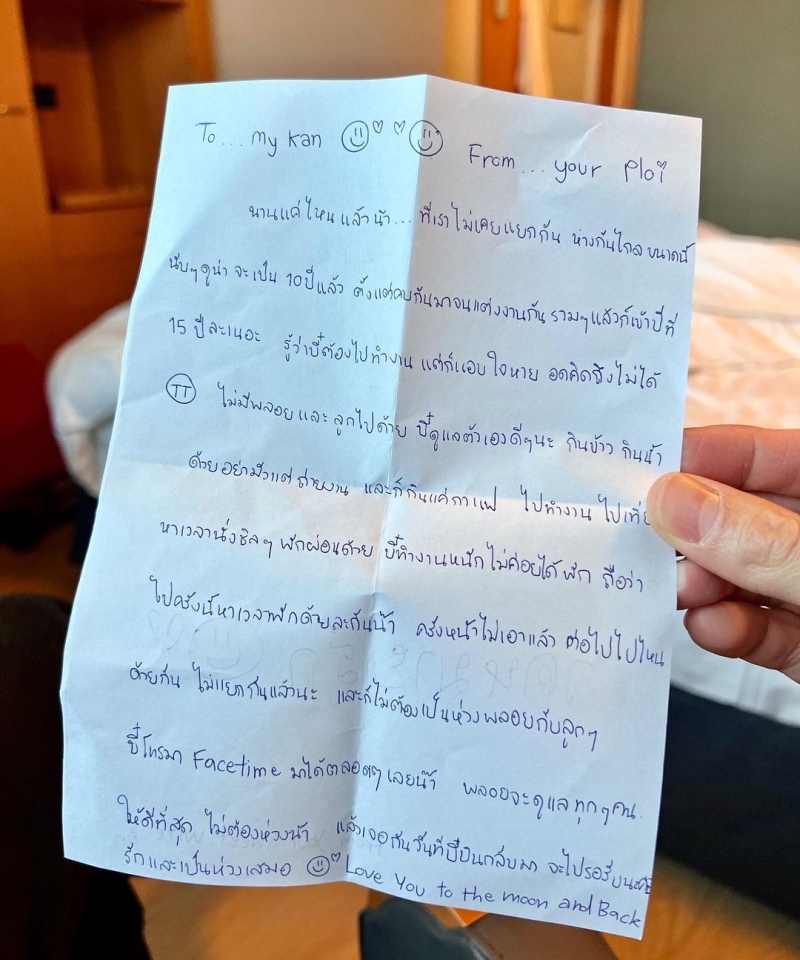 To... my Kan From... your Ploi
นานแค่ไหนแล้วน้า... ที่เราไม่เคยแยกกัน ห่างกันไกลขนาดนี้
นับๆดูน่า จะเป็น 10ปีแล้ว ตั้งแต่คบกันมาจนแต่งงานกัน รวมๆแล้วก็เข้าปีที่
15 ปีละเนอะ รู้ว่าบี๋ต้องไปทำงาน แต่ก็แอบใจหาย อดคิดถึงไม่ได้
TT ไม่มีพลอยและ ลูกไปด้วย บี๋ดูแลตัวเองดีๆนะ กินข้าว กินน้ำ
ด้วยอย่ามัวแต่ถ่ายงาน และก็กินแค่กาแฟ ไปทำงาน
หาเวลานั่งชิลๆ พักผ่อนด้วย บี๋ทำงานหนักไม่ค่อยได้พัก ถือว่า
ไปครั้งนี้หาเวลาพักด้วยละกันน้ำ ครั้งหน้าไม่เอาแล้ว ต่อไปไปไหน
ด้วยกัน ไม่แยกกันแล้วนะ และก็ไม่ต้องเป็นห่วงพลอยกับลูกๆ
บี๋โทรมา Facetime มาได้ตลอดๆเลยน้ำ พลอยจะดูแลทุกๆคน
ให้ดีที่สุด ไม่ต้องห่วงน้ำ แล้วเจอกันวันที่บี๋บินกลับมา
รักและเป็นห่วงเสมอ Love You to the moon and Back